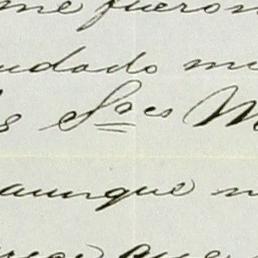 me fueron
udado m
s Sres M
aunque n
que